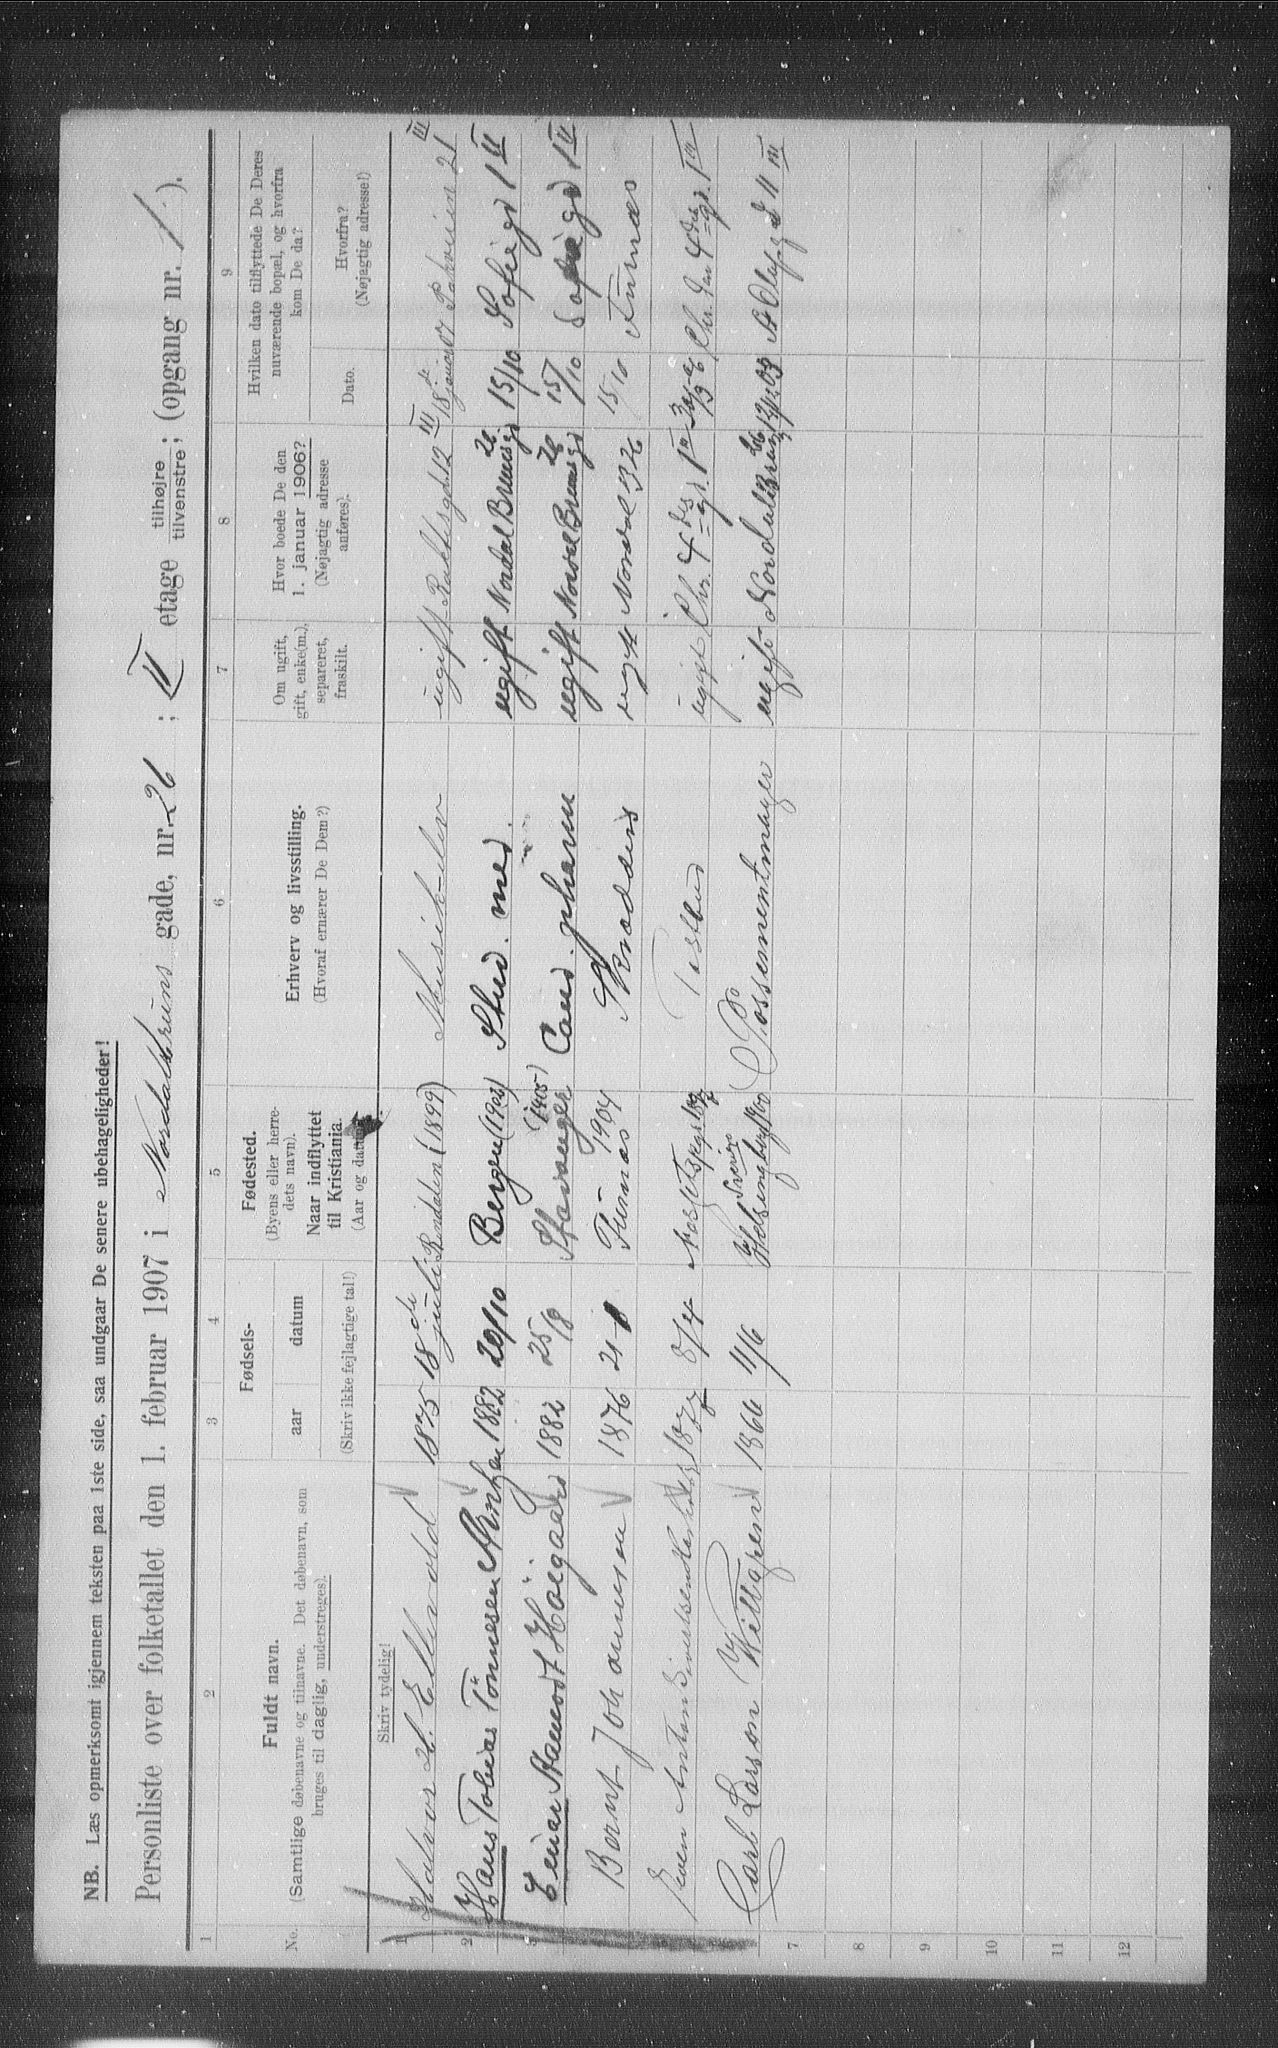 NB. Læs opmerksomt igjennem teksten paa 1ste side, saa undgaar De senere ubehageligheder!
Personliste over folketallet den 1. februar 1907 i Nordal Bruns gade, nr. 26 ; II etage tilhøjre tilvenstre; (opgang nr. 1 ).
1 2 3 4 5 6 7 8 9
No.
Fuldt navn.
(Samtlige døbenavne og tilnavne. Det døbenavn, som
bruges til daglig, understreges).
Skriv tydelig!
Fødsels-
aar datum
(Skriv ikke fejlagtige tal!)
Fødested.
(Byens eller herre-
dets navn).
Naar indflyttet
til Kristiania.
(Aar og datum)
Erhverv og livsstilling.
(Hvoraf ernærer De Dem?)
Om ugift,
gift, enke(m.),
separeret,
fraskilt.
Hvor boede De den
1. januar 1906?
(Nøjagtig adresse
anføres).
Hvilken dato tilflyttede De Deres
nuværende bopæl, og hvorfra
kom De da?
Dato.
Hvorfra?
(Nøjagtig adresse!)
1 Halvor H. Ellevold 1875 18de juli Rindalen (1899) Musik-elev ugift 12 III 18de januar 07 21 III
2 Hans Tobias Tönnesen 1882 20/10 Bergen (1902) Stud. med. ugift Nordal Brunsgd 26 15/10 Sofiegd 1 II
3 Einar Hoigaard 1882 25/8 Stavanger (1905) Cand. pharm ugift Nordal Brunsgd 26 15/10 Sofiegd 1 II
Bernt Johannesen 1876 21 1904 Skrædder ugift 26 15/10
Anton Sivertsen 1877 8/4 ugift Chr. 4des gd. 1 III Chr. den 4des gd. 1 III
Carl Larson 1866 11/6 Helsingborg Sverige 1900 Possementmager ugift Nordal Bruns 26 St Olafs gd 11 III
7
8
9
10
11
12